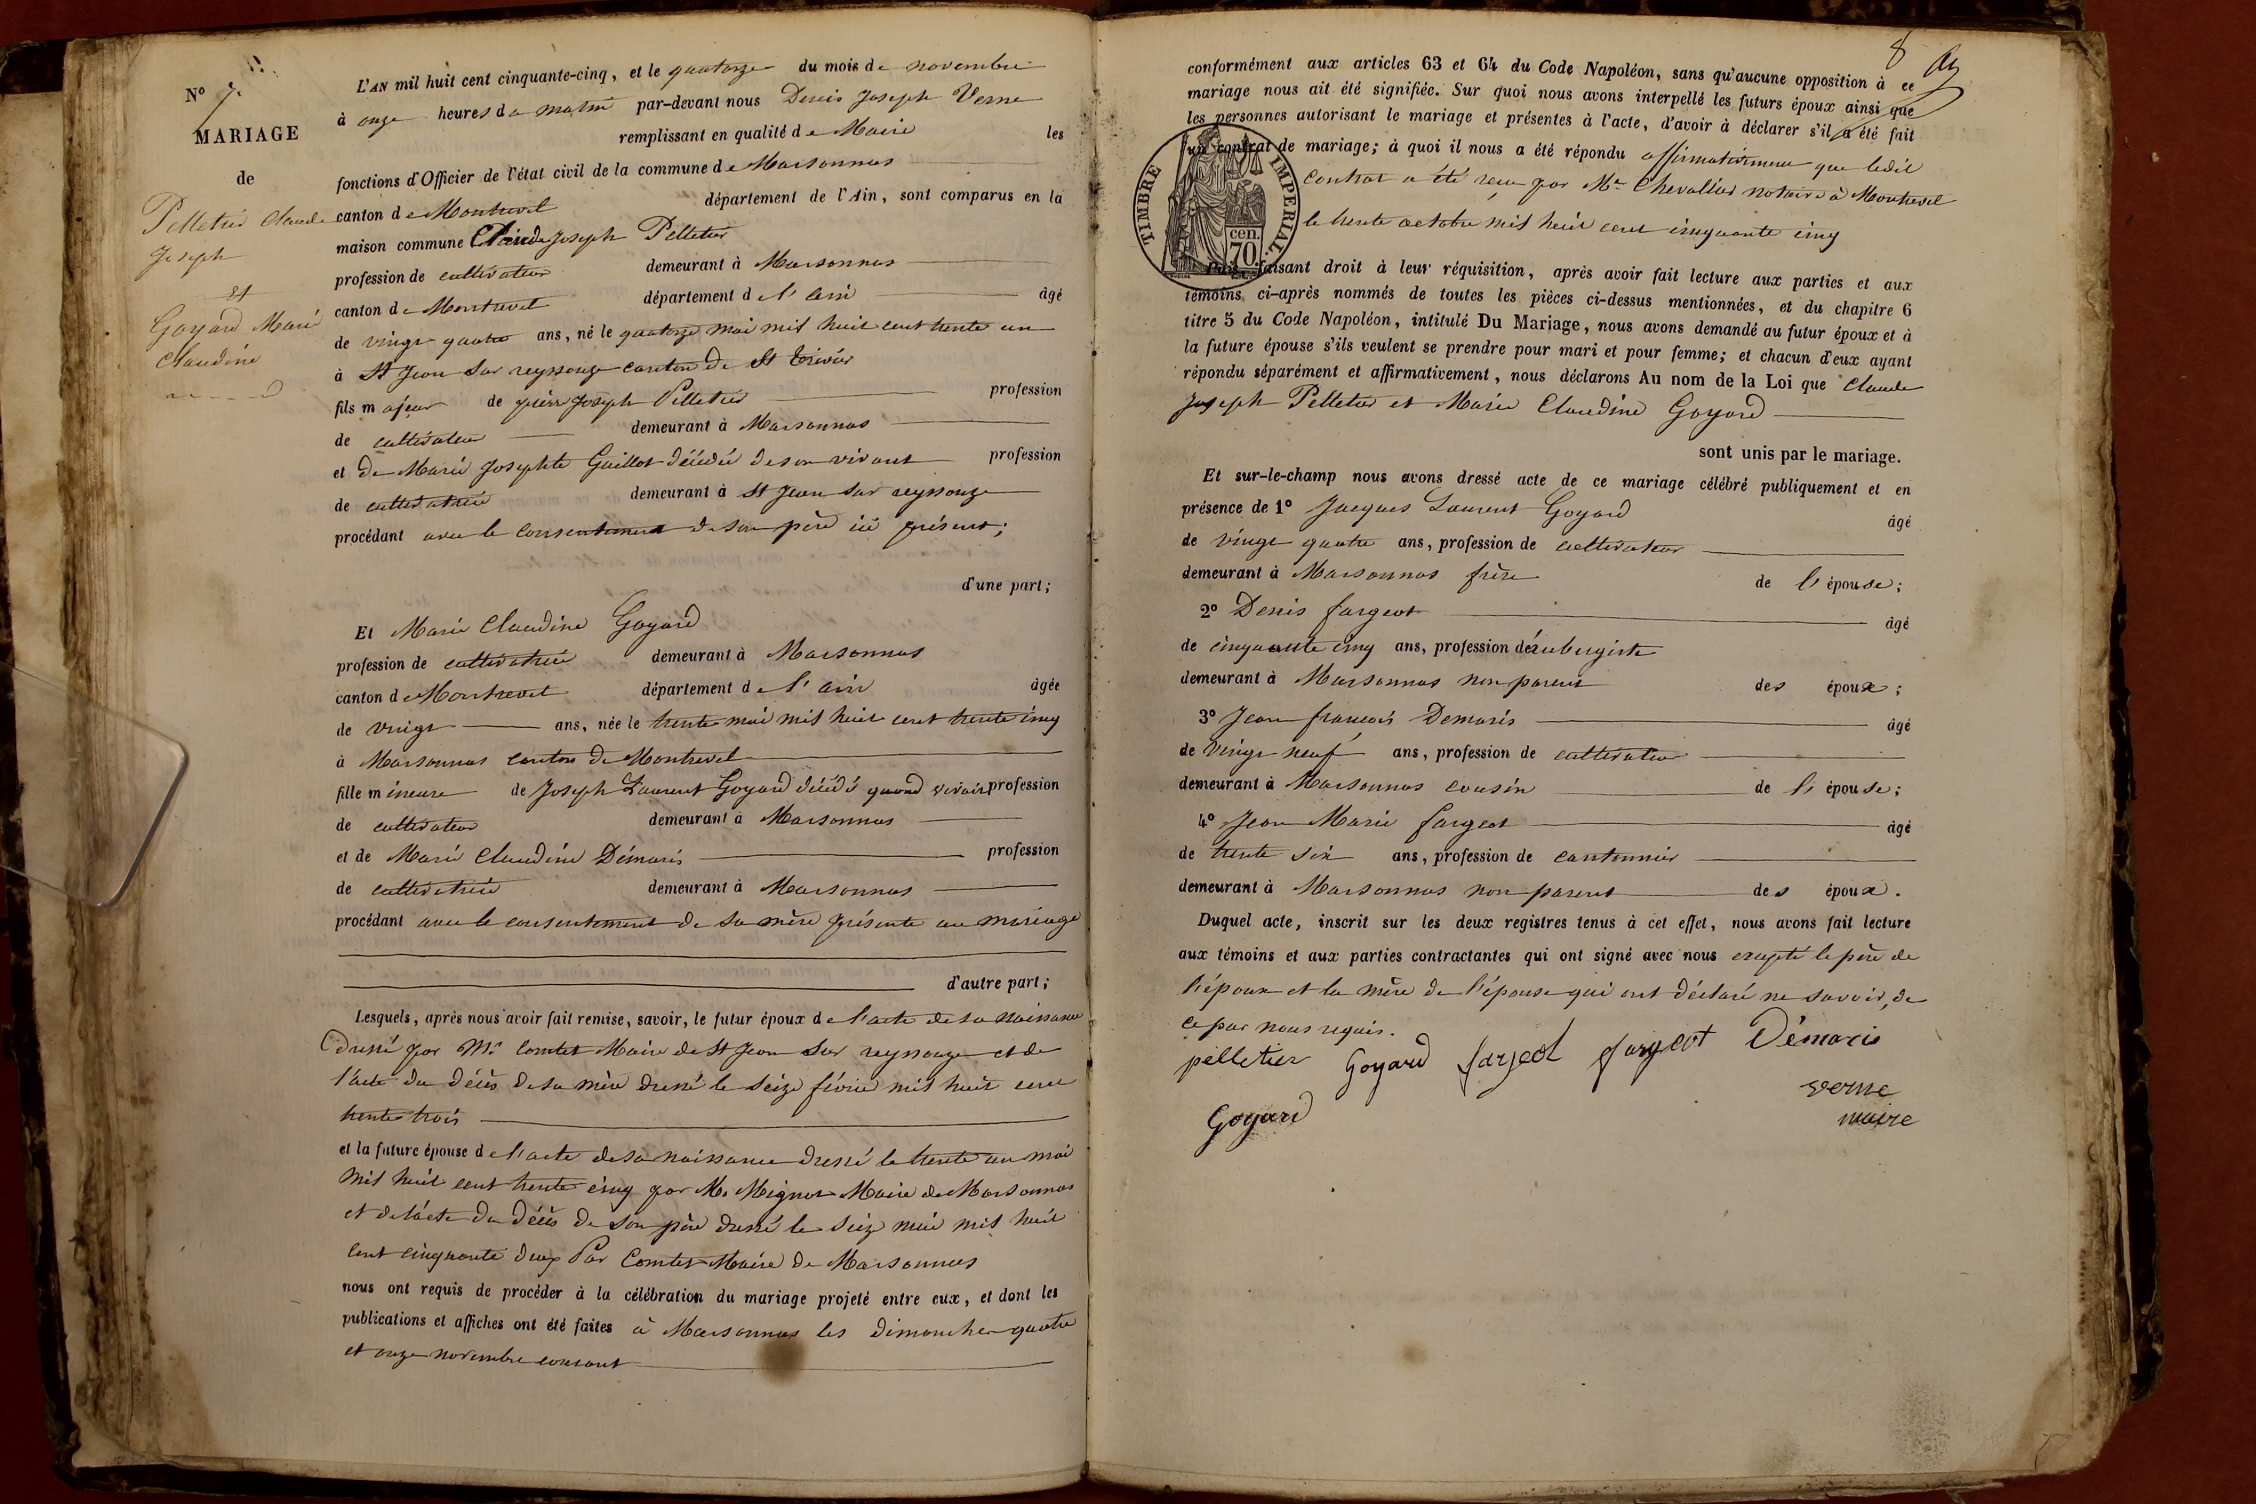 N° 7.
MARIAGE
de
Pelletier Claude
Joseph
et
Goyard Marie
Claudine
L'AN mil huit cent cinquante-cinq, et le quatorze du mois de novembre
à onze heures du matin par-devant nous Denis Joseph Verne
remplissant en qualité de Maire les
fonctions d'Officier de l'état civil de la commune de Marsonnas
canton de Montrevel département de l'Ain, sont comparus en la
maison commune Claude Joseph Pelletier
profession de cultivateur demeurant à Marsonnas
canton de Montrevel département de l'ain âgé
de vingt quatre ans, né le quatorze mai mil huit cent trente un
à St Jean sur reyssouze canton de St trivier
fils majeur de pierre Joseph Pelletier profession
de cultivateur demeurant à Marsonnas
et de Marie Josephte Guillot décédée de son vivant profession
de cultivatrice demeurant à St Jean sur reyssouze
procédant avec le consentement de son père ici présent;
d'une part;
Et Marie Claudine Goyard
profession de cultivatrice demeurant à Marsonnas
canton de Montrevel département de l'ain âgée
de vingt ans, née le trente mai mil huit cent trente cinq
à Marsonnas canton de Montrevel
fille mineure de Joseph Laurent Goyard décédé quand vivait profession
de cultivateur demeurant à Marsonnas
et de Marie Claudine Démaris profession
de cultivatrice demeurant à Marsonnas
procédant avec le consentement de sa mère présente au mariage
d'autre part;
Lesquels, après nous avoir fait remise, savoir, le futur époux de l'acte de sa naissance
dressé par Mr Comtet Maire de St Jean sur reyssouze et de
l'acte du décès de sa mère dressé le seize février mil huit cent
trente trois
et la future épouse de l'acte de sa naissance dressé le trente un mai
mil huit cent trente cinq par Mr Mignot Maire de Marsonnas
et de l'acte du décès de son père dressé le seize mai mil huit
cent cinquante deux Par Comtet Maire de Marsonnas
nous ont requis de procéder à la célébration du mariage projeté entre eux, et dont les
publications et affiches ont été faites à Marsonnas les dimanches quatre
et onze novembre courant
8
conformément aux articles 63 et 64 du Code Napoléon, sans qu'aucune opposition à ce
mariage nous ait été signifiée. Sur quoi nous avons interpellé les futurs époux ainsi que
les personnes autorisant le mariage et présentes à l'acte, d'avoir à déclarer s'il a été fait
un contrat de mariage; à quoi il nous a été répondu affirmativement que ledit
contrat a été reçu par Me Chevallier notaire à Montrevel
le trente octobre mil huit cent cinquante cinq
TIMBRE IMPERIAL.
cen.
70.
Puis, faisant droit à leur réquisition, après avoir fait lecture aux parties et aux
témoins, ci-après nommés de toutes les pièces ci-dessus mentionnées, et du chapitre 6
titre 5 du Code Napoléon, intitulé Du Mariage, nous avons demandé au futur époux et à
la future épouse s'ils veulent se prendre pour mari et pour femme; et chacun d'eux ayant
répondu séparément et affirmativement, nous déclarons Au nom de la Loi que Claude
Joseph Pelletier et Marie Claudine Goyard
sont unis par le mariage.
Et sur-le-champ nous avons dressé acte de ce mariage célébré publiquement et en
présence de 1° Jacques Laurent Goyard âgé
de vingt quatre ans, profession de cultivateur
demeurant à Marsonnas frère de l'épouse;
2° Denis fargeot âgé
de cinquante cinq ans, profession d'aubergiste
demeurant à Marsonnas non parent des époux;
3° Jean françois Demaris âgé
de vingt neuf ans, profession de cultivateur
demeurant à Marsonnas cousin de l'épouse;
4° Jean Marie fargeot âgé
de trente six ans, profession de cantonnier
demeurant à Marsonnas non parent des époux.
Duquel acte, inscrit sur les deux registres tenus à cet effet, nous avons fait lecture
aux témoins et aux parties contractantes qui ont signé avec nous excepté le père de
l'époux et la mère de l'épouse qui ont déclaré ne savoir, de
ce par nous requis.
pelletier Goyard fargeot fargeot Démaris
verne
maire
Goyard